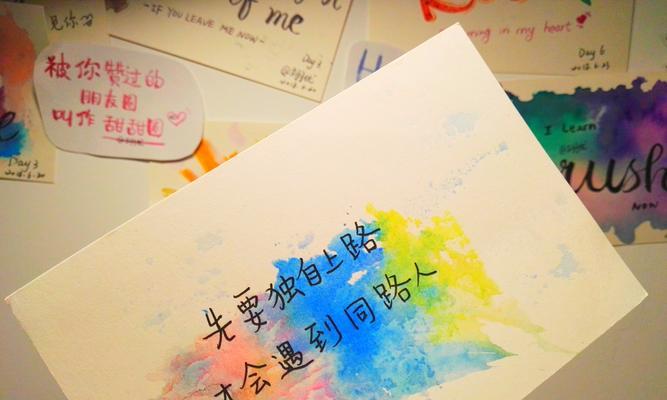 见你
-IF YOU LEAVE ME NOW-
of me
Day 3
被你赞过的
朋友圈
叫作 甜甜圈
Day 3
H
in my heart
Day 6
I Learn
Brush
NOW
先要独自上路
才会遇到同路人